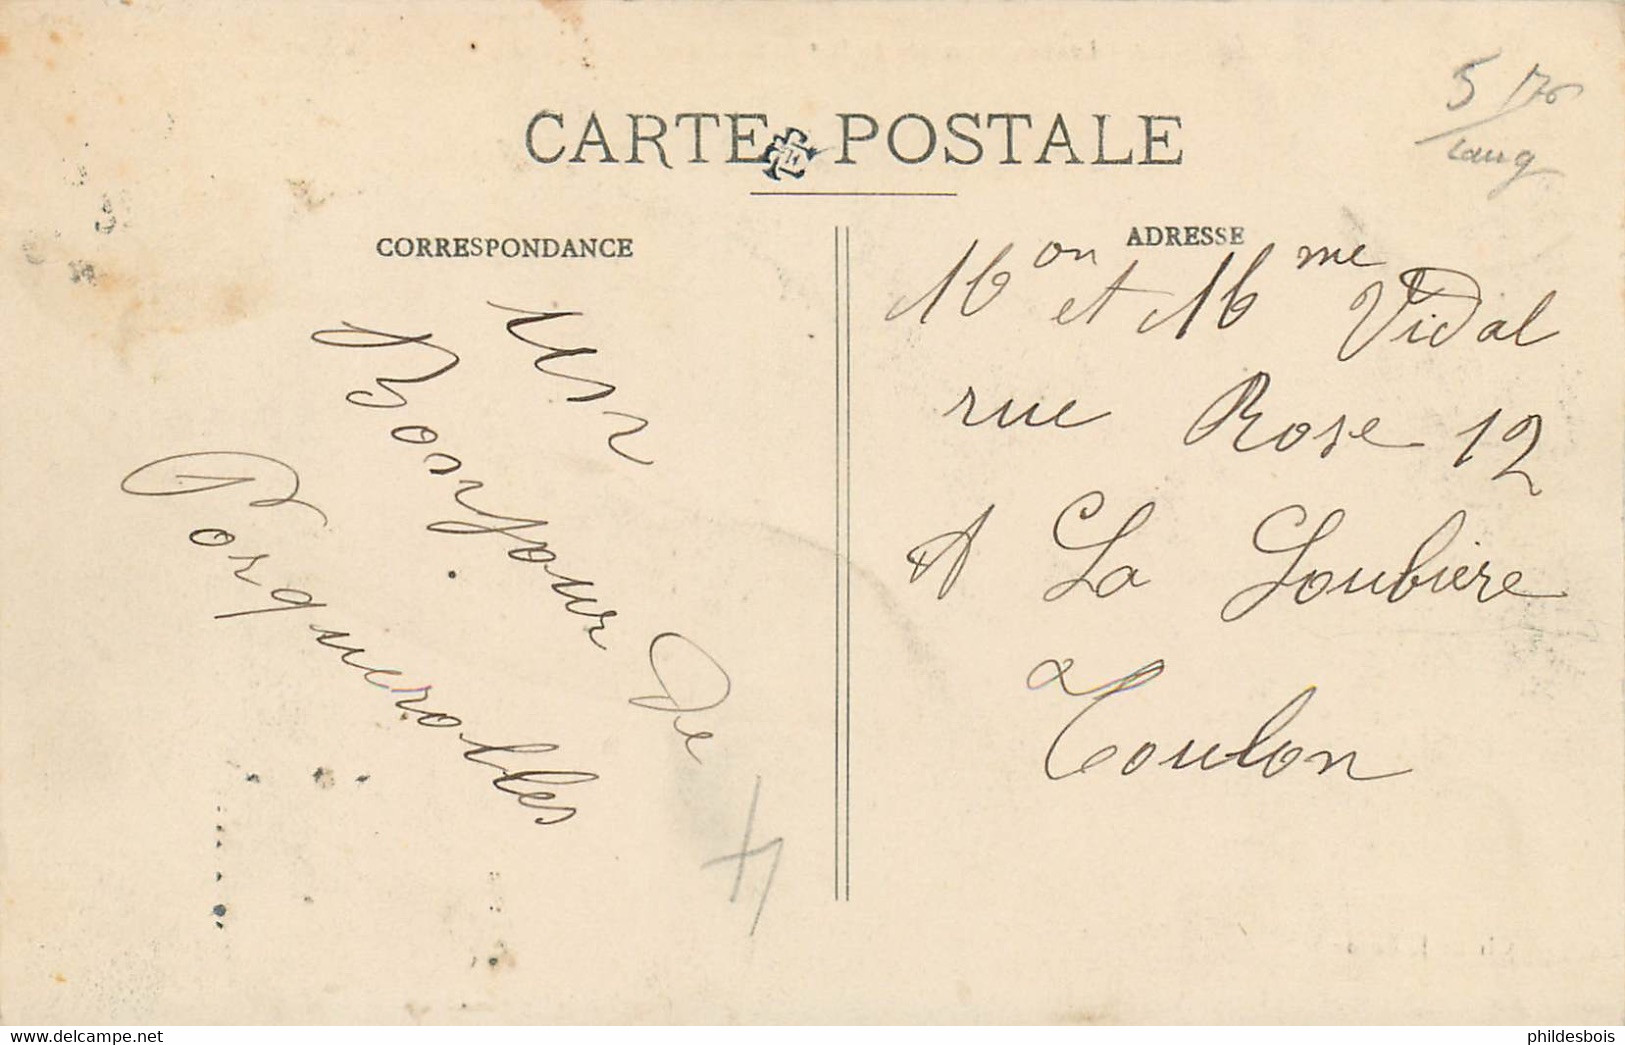 CARTE POSTALE
CORRESPONDANCE
un
Bonjour de
Porquerolles
ADRESSE
Mon et Mme Vidal
rue Rose 12
A La Loubiere
a Toulon
5
www.delcampe.net
phildesbois